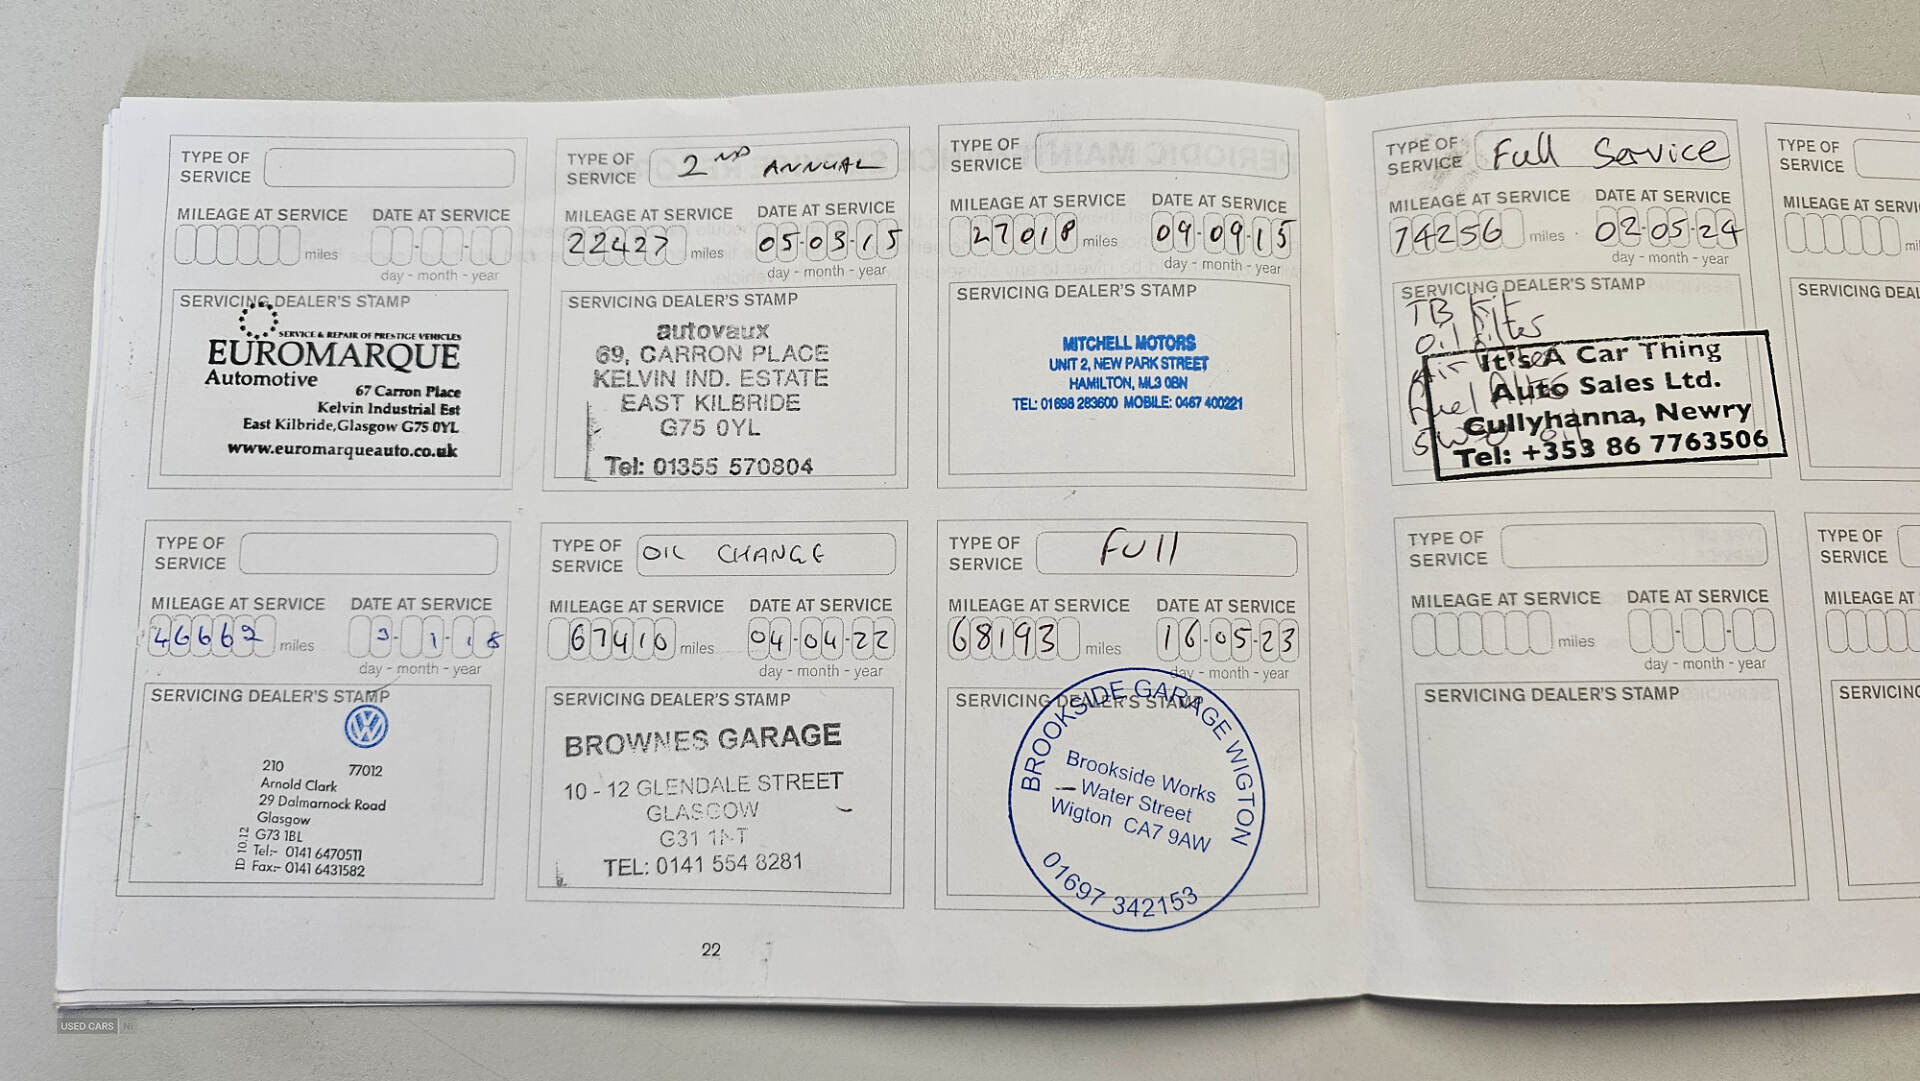 TYPE OF
SERVICE
MILEAGE AT SERVICE DATE AT SERVICE
miles
day - month - year
SERVICING DEALER'S STAMP
SERVICE & REPAIR OF PRESTIGE VEHICLES
EUROMARQUE
Automotive
67 Carron Place
Kelvin Industrial Est
East Kilbride, Glasgow G75 0YL
www.euromarqueauto.co.uk
TYPE OF
SERVICE 2ND ANNUAL
MILEAGE AT SERVICE DATE AT SERVICE
22427 miles 05-03-15
day - month - year
SERVICING DEALER'S STAMP
autovaux
69, CARRON PLACE
KELVIN IND. ESTATE
EAST KILBRIDE
G75 0YL
Tel: 01355 570804
TYPE OF
SERVICE
MILEAGE AT SERVICE DATE AT SERVICE
27018 miles 09-09-15
day - month - year
SERVICING DEALER'S STAMP
MITCHELL MOTORS
UNIT 2, NEW PARK STREET
HAMILTON, ML3 0BN
TEL: 01698 283600 MOBILE: 0467 400221
TYPE OF
SERVICE Full Service
MILEAGE AT SERVICE DATE AT SERVICE
74256 miles 02-05-24
day - month - year
SERVICING DEALER'S STAMP
TB Kit
Oil filter
Air
fuel
It's A Car Thing
Auto Sales Ltd.
Cullyhanna, Newry
Tel: +353 86 7763506
TYPE OF
SERVICE
MILEAGE AT SERVI
mi
SERVICING DEAL
TYPE OF
SERVICE
MILEAGE AT SERVICE DATE AT SERVICE
46662 miles 3-1-18
day - month - year
SERVICING DEALER'S STAMP
210 77012
Arnold Clark
29 Dalmarnock Road
Glasgow
G73 1BL
Tel:- 0141 6470511
Fax:- 0141 6431582
ID 10.12
TYPE OF
SERVICE OIL CHANGE
MILEAGE AT SERVICE DATE AT SERVICE
67410 miles 04-04-22
day - month - year
SERVICING DEALER'S STAMP
BROWNES GARAGE
10 - 12 GLENDALE STREET
GLASGOW
G31 1NT
TEL: 0141 554 8281
TYPE OF
SERVICE Full
MILEAGE AT SERVICE DATE AT SERVICE
68193 miles 16-05-23
day - month - year
SERVICING DEALER'S STAMP
BROOKSIDE GARAGE WIGTON
Brookside Works
Water Street
Wigton CA7 9AW
01697 342153
TYPE OF
SERVICE
MILEAGE AT SERVICE DATE AT SERVICE
miles
day - month - year
SERVICING DEALER'S STAMP
TYPE OF
SERVICE
MILEAGE AT
SERVICING
22
USED CARS NI